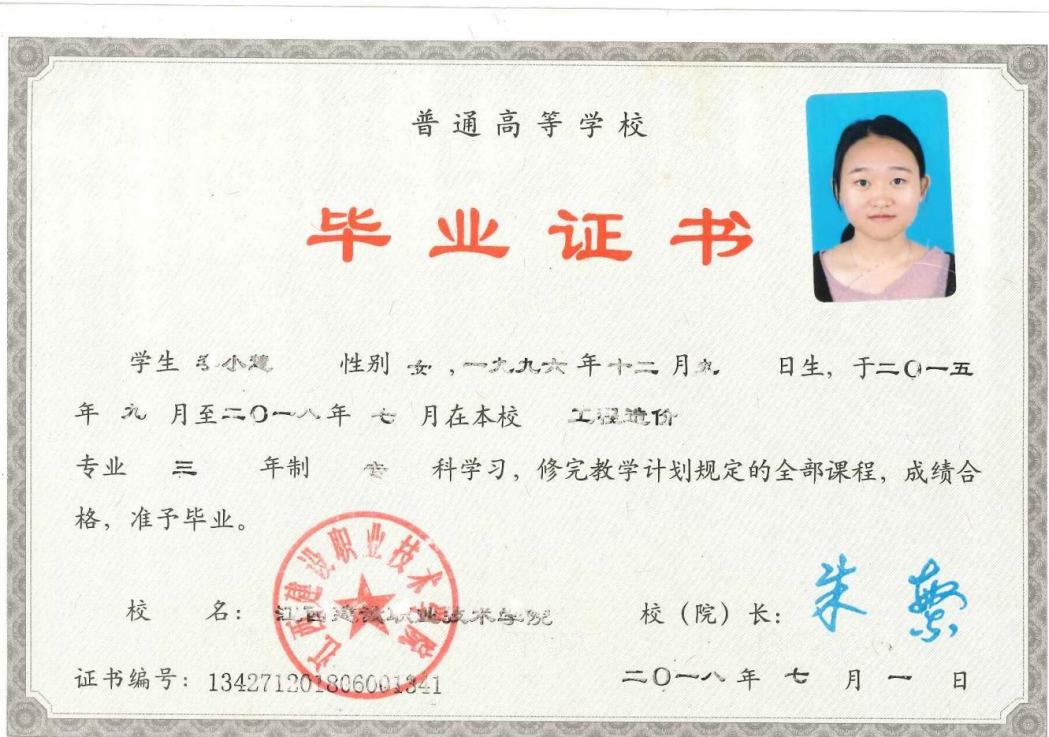 普通高等学校
毕业证书
学生 小慧 性别 女,一九九六年十二月九 日生,于二〇一五
年 九 月至二〇一八年 七 月在本校 工程造价
专业 三 年制 专 科学习,修完教学计划规定的全部课程,成绩合
格,准予毕业。
江西建设职业技术学院
校 名: 江西建设职业技术学院 校(院)长: 朱繁
证书编号: 134271201806001341 二〇一八年 七 月 一 日